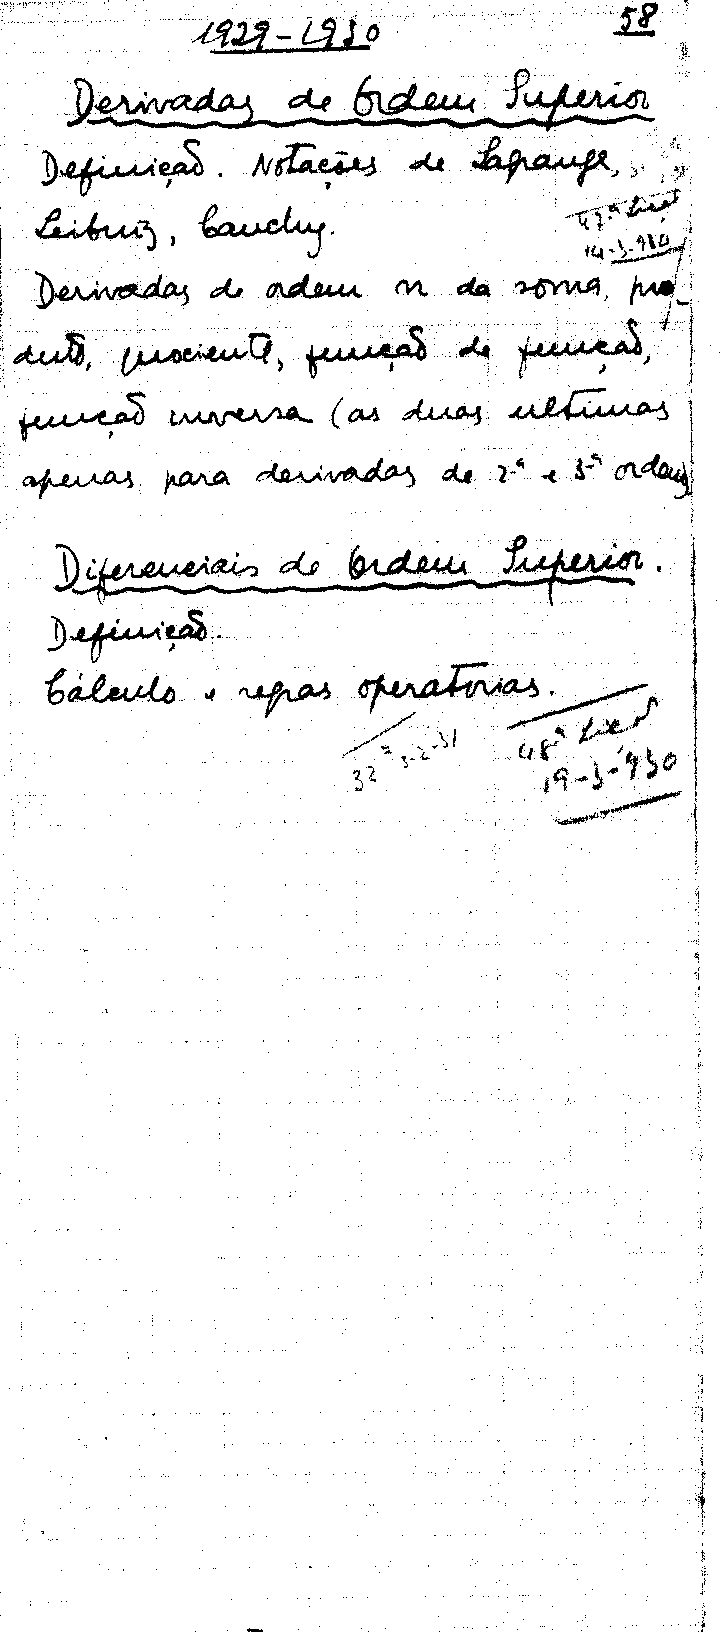 1929-1930
58
Derivadas de Ordem Superior
Definição. Notações de Lagrange,
Leibniz, Cauchy.
47ª Lição
14-3-930
Derivadas de ordem n da soma, pro-
duto, quociente, função de função,
função inversa (as duas ultimas
apenas para derivadas de 2ª e 3ª ordem)
Diferenciais de Ordem Superior.
Definição.
Cálculo e regras operatorias.
32ª 3-2-31
48ª Lição
19-3-930